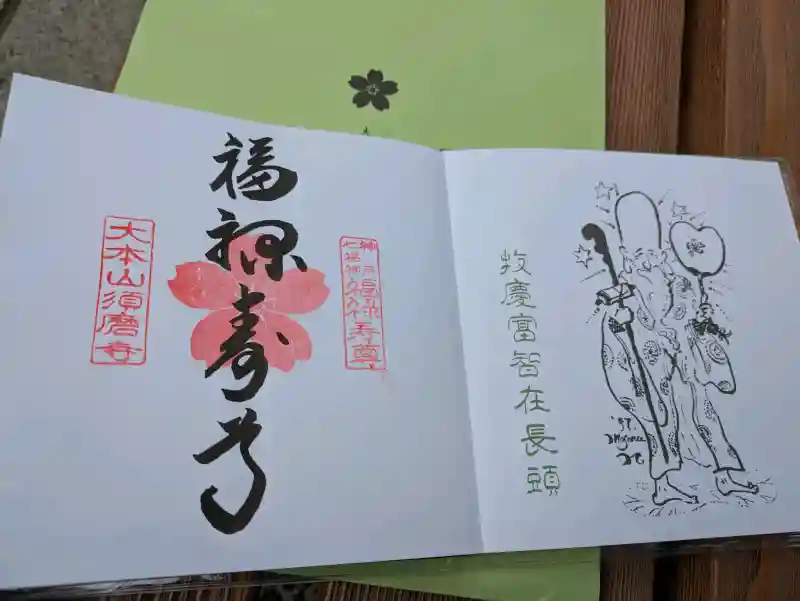 慶富智在長頭
神戸
七福神
福禄寿尊
福禄寿尊
大本山須磨寺